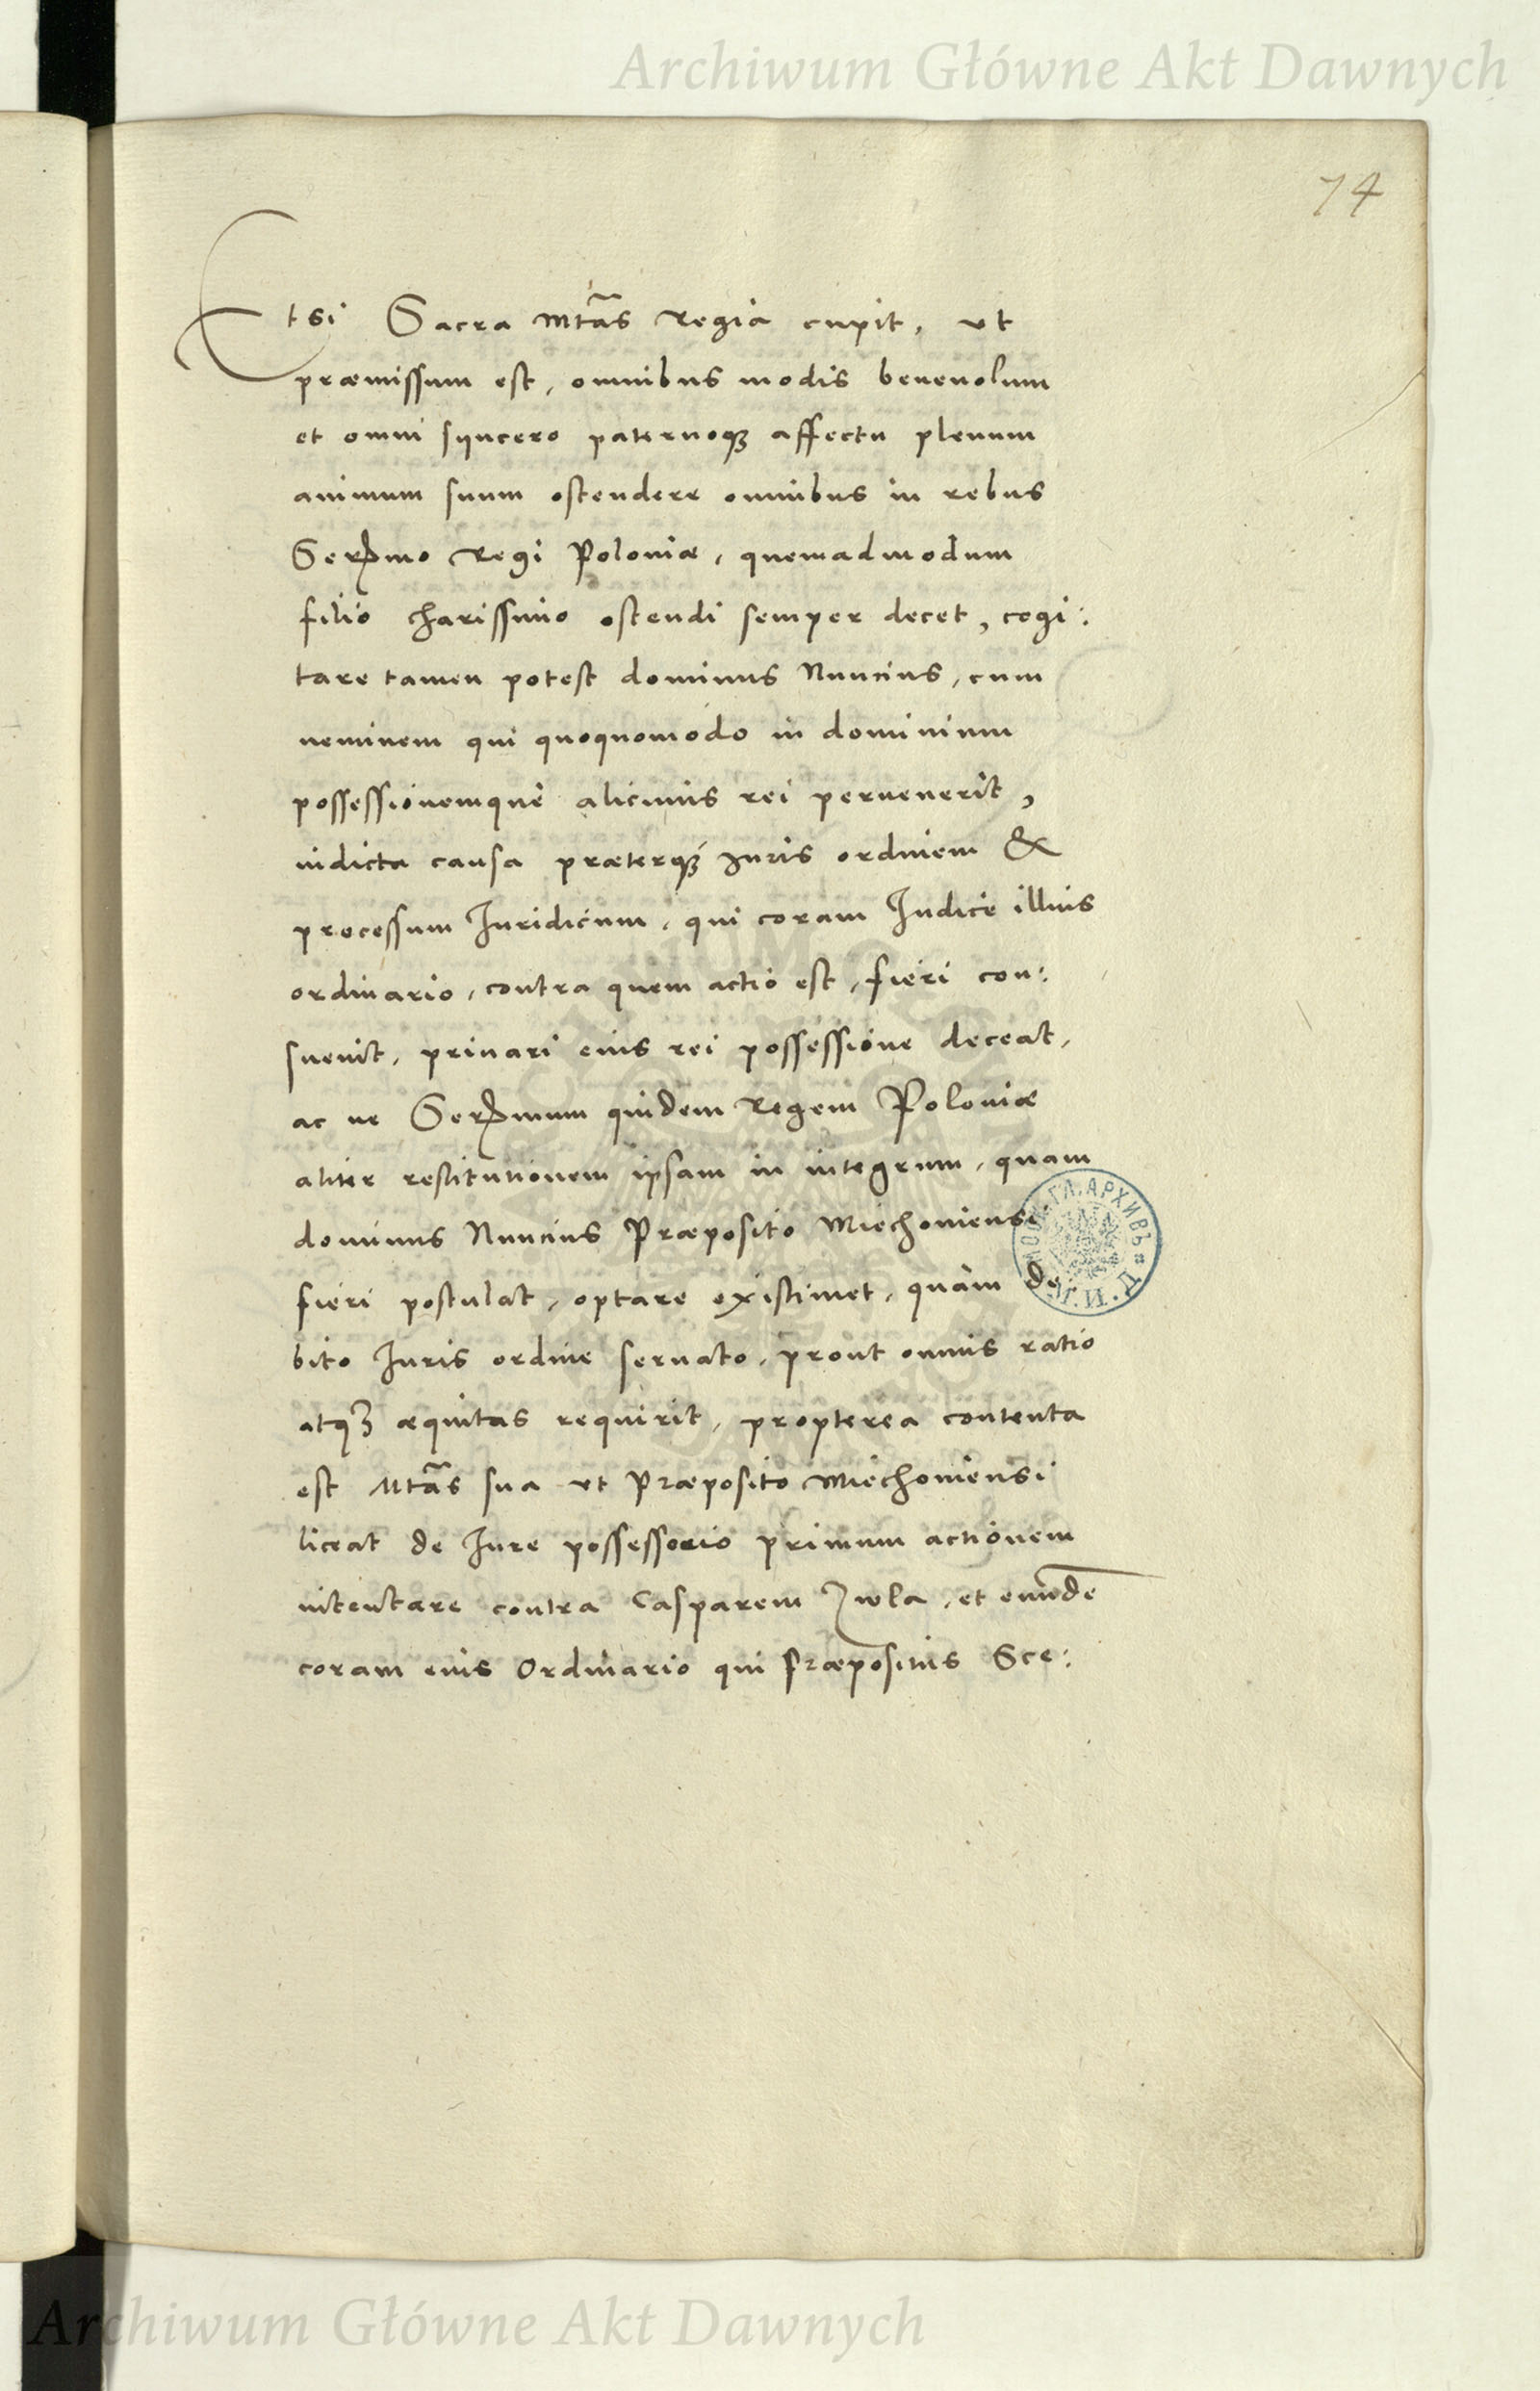 Archiwum Główne Akt Dawnych
74
Etsi Sacra Mtãs Regia cupit, vt
præmissum est, omnibus modis beneuolum
et omni syncero paternoqꝫ affectu plenum
animum suum ostendere omnibus in rebus
Serᵐᵒ Regi Poloniæ, quemadmodum
filio charissimo ostendi semper decet, cogi:
tare tamen potest dominus Nuncius, cum
neminem qui quoquomodo in dominium
possessionemque alicuius rei peruenerit,
indicta causa præterqꝫ Iuris ordinem &
processum Iuridicum, qui coram Iudice illius
ordinario, contra quem actio est, fieri con:
sueuit, priuari eius rei possessione deceat,
ac ne Serᵐum quidem Regem Poloniæ
aliter restitutionem ipsam in integrum, quam
dominus Nuncius Præposito Miechouiensi
fieri postulat, optare existimet, quàm de
bito Iuris ordine seruato, prout omnis ratio
atqꝫ æquitas requirit, propterea contenta
est Mtãs sua vt Præposito Miechouiensi
liceat de Iure possessorio primum actionem
intentare contra Casparem Zula, et eundẽ
coram eius Ordinario qui Præpositus Sce:
ГЛ. АРХИВЪ
Archiwum Główne Akt Dawnych